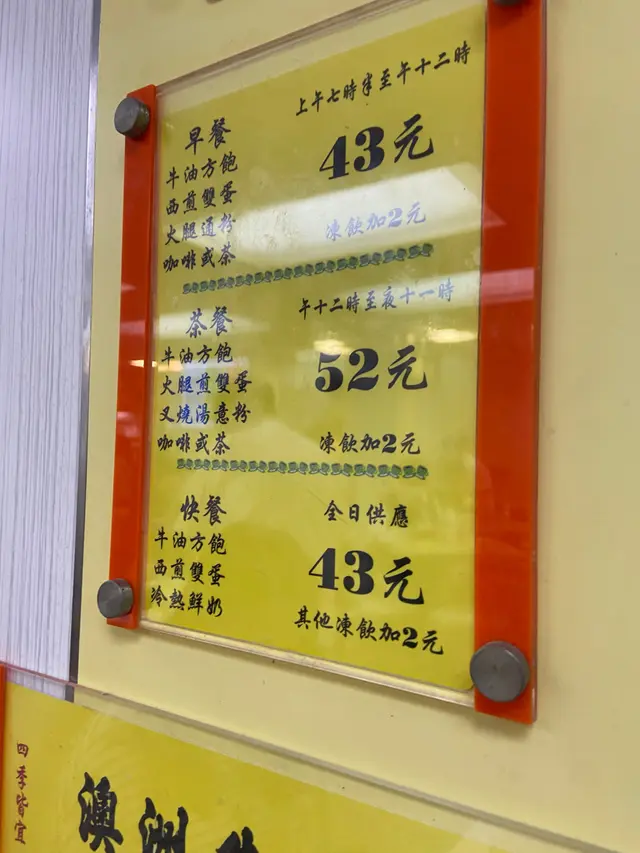 早餐
牛油方飽
西煎雙蛋
火腿通粉
咖啡或茶
上午七時半至午十二時
43元
凍飲加2元
茶餐
牛油方飽
火腿煎雙蛋
叉燒湯意粉
咖啡或茶
午十二時至夜十一時
52元
凍飲加2元
快餐
牛油方飽
西煎雙蛋
冷熱鮮奶
全日供應
43元
其他凍飲加2元
四季皆宜
澳洲